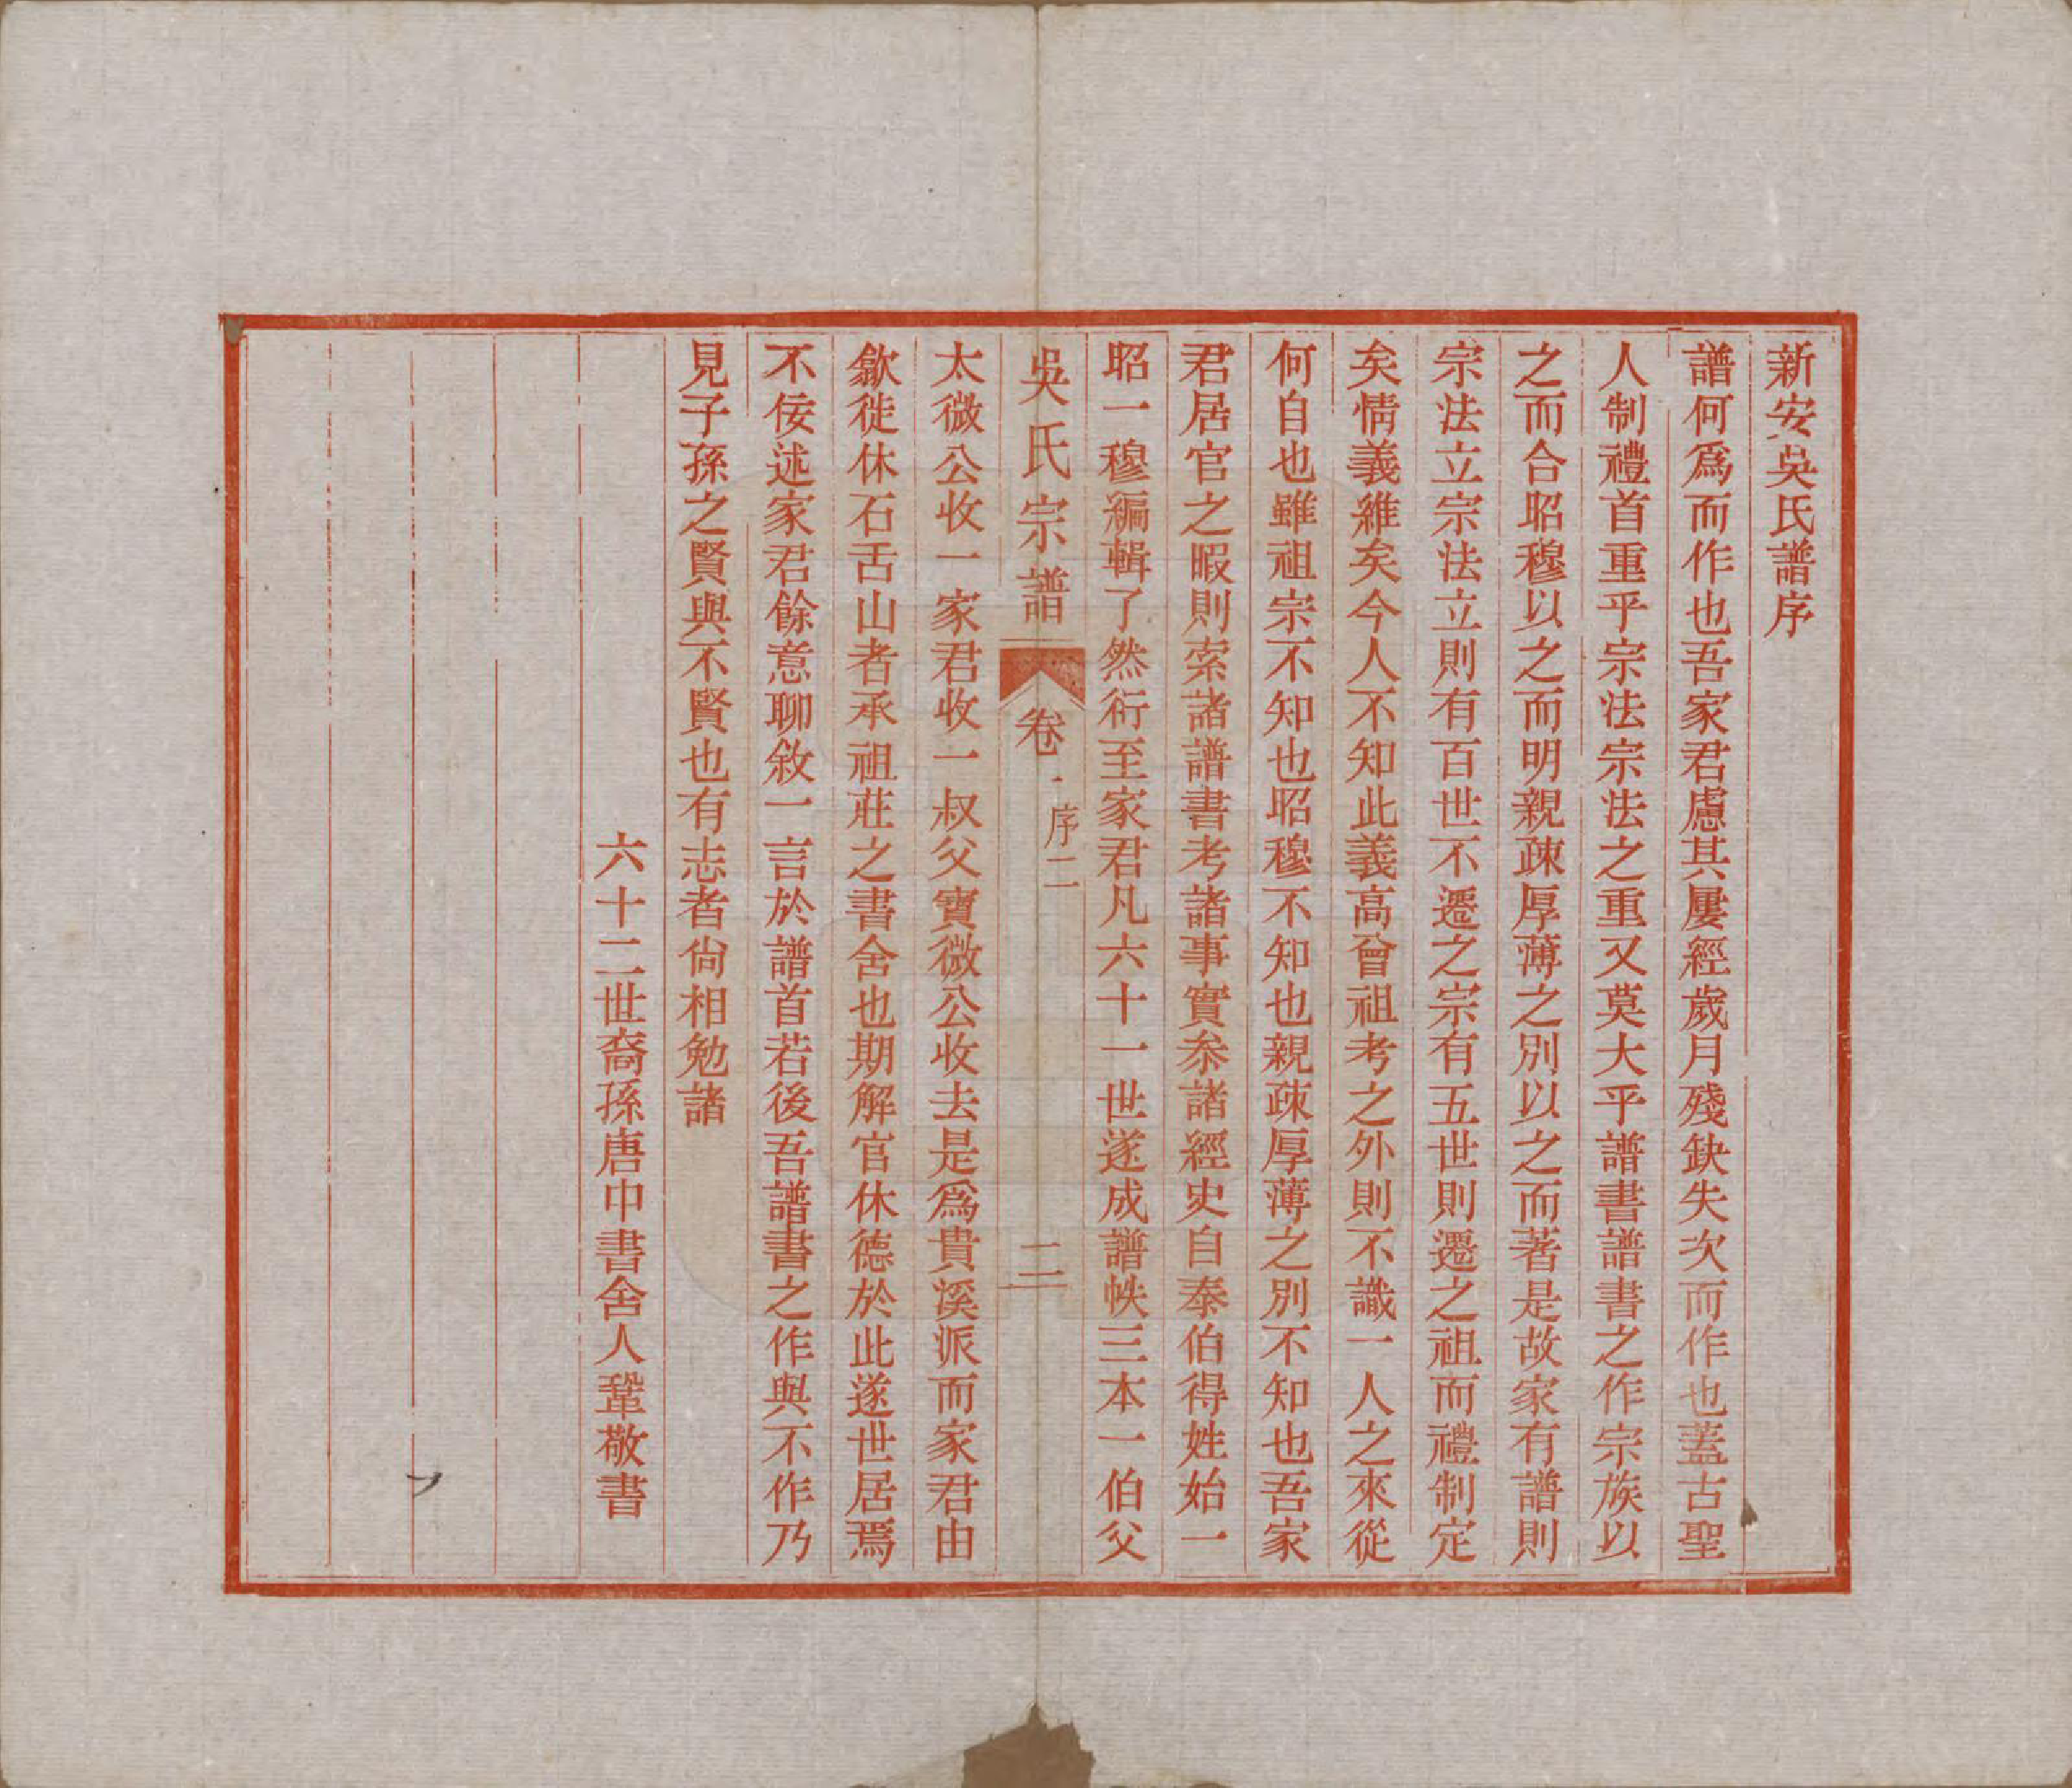 新安吳氏譜序
譜何爲而作也吾家君慮其屢經歲月殘缺失次而作也蓋古聖
人制禮首重乎宗法宗法之重又莫大乎譜書譜書之作宗族以
之而合昭穆以之而明親疎厚薄之別以之而著是故家有譜則
宗法立宗法立則有百世不遷之宗有五世則遷之祖而禮制定
矣情義維矣今人不知此義高曾祖考之外則不識一人之來從
何自也雖祖宗不知也昭穆不知也親疎厚薄之別不知也吾家
君居官之暇則索諸譜書考諸事實叅諸經史自泰伯得姓始一
昭一穆編輯了然衍至家君凡六十一世遂成譜帙三本一伯父
吳氏宗譜
卷一
序二
二
太微公收一家君收一叔父寶微公收去是爲貴溪派而家君由
歙徙休石舌山者承祖莊之書舍也期解官休德於此遂世居焉
不佞述家君餘意聊敘一言於譜首若後吾譜書之作與不作乃
見子孫之賢與不賢也有志者尙相勉諸
六十二世裔孫唐中書舍人鞏敬書